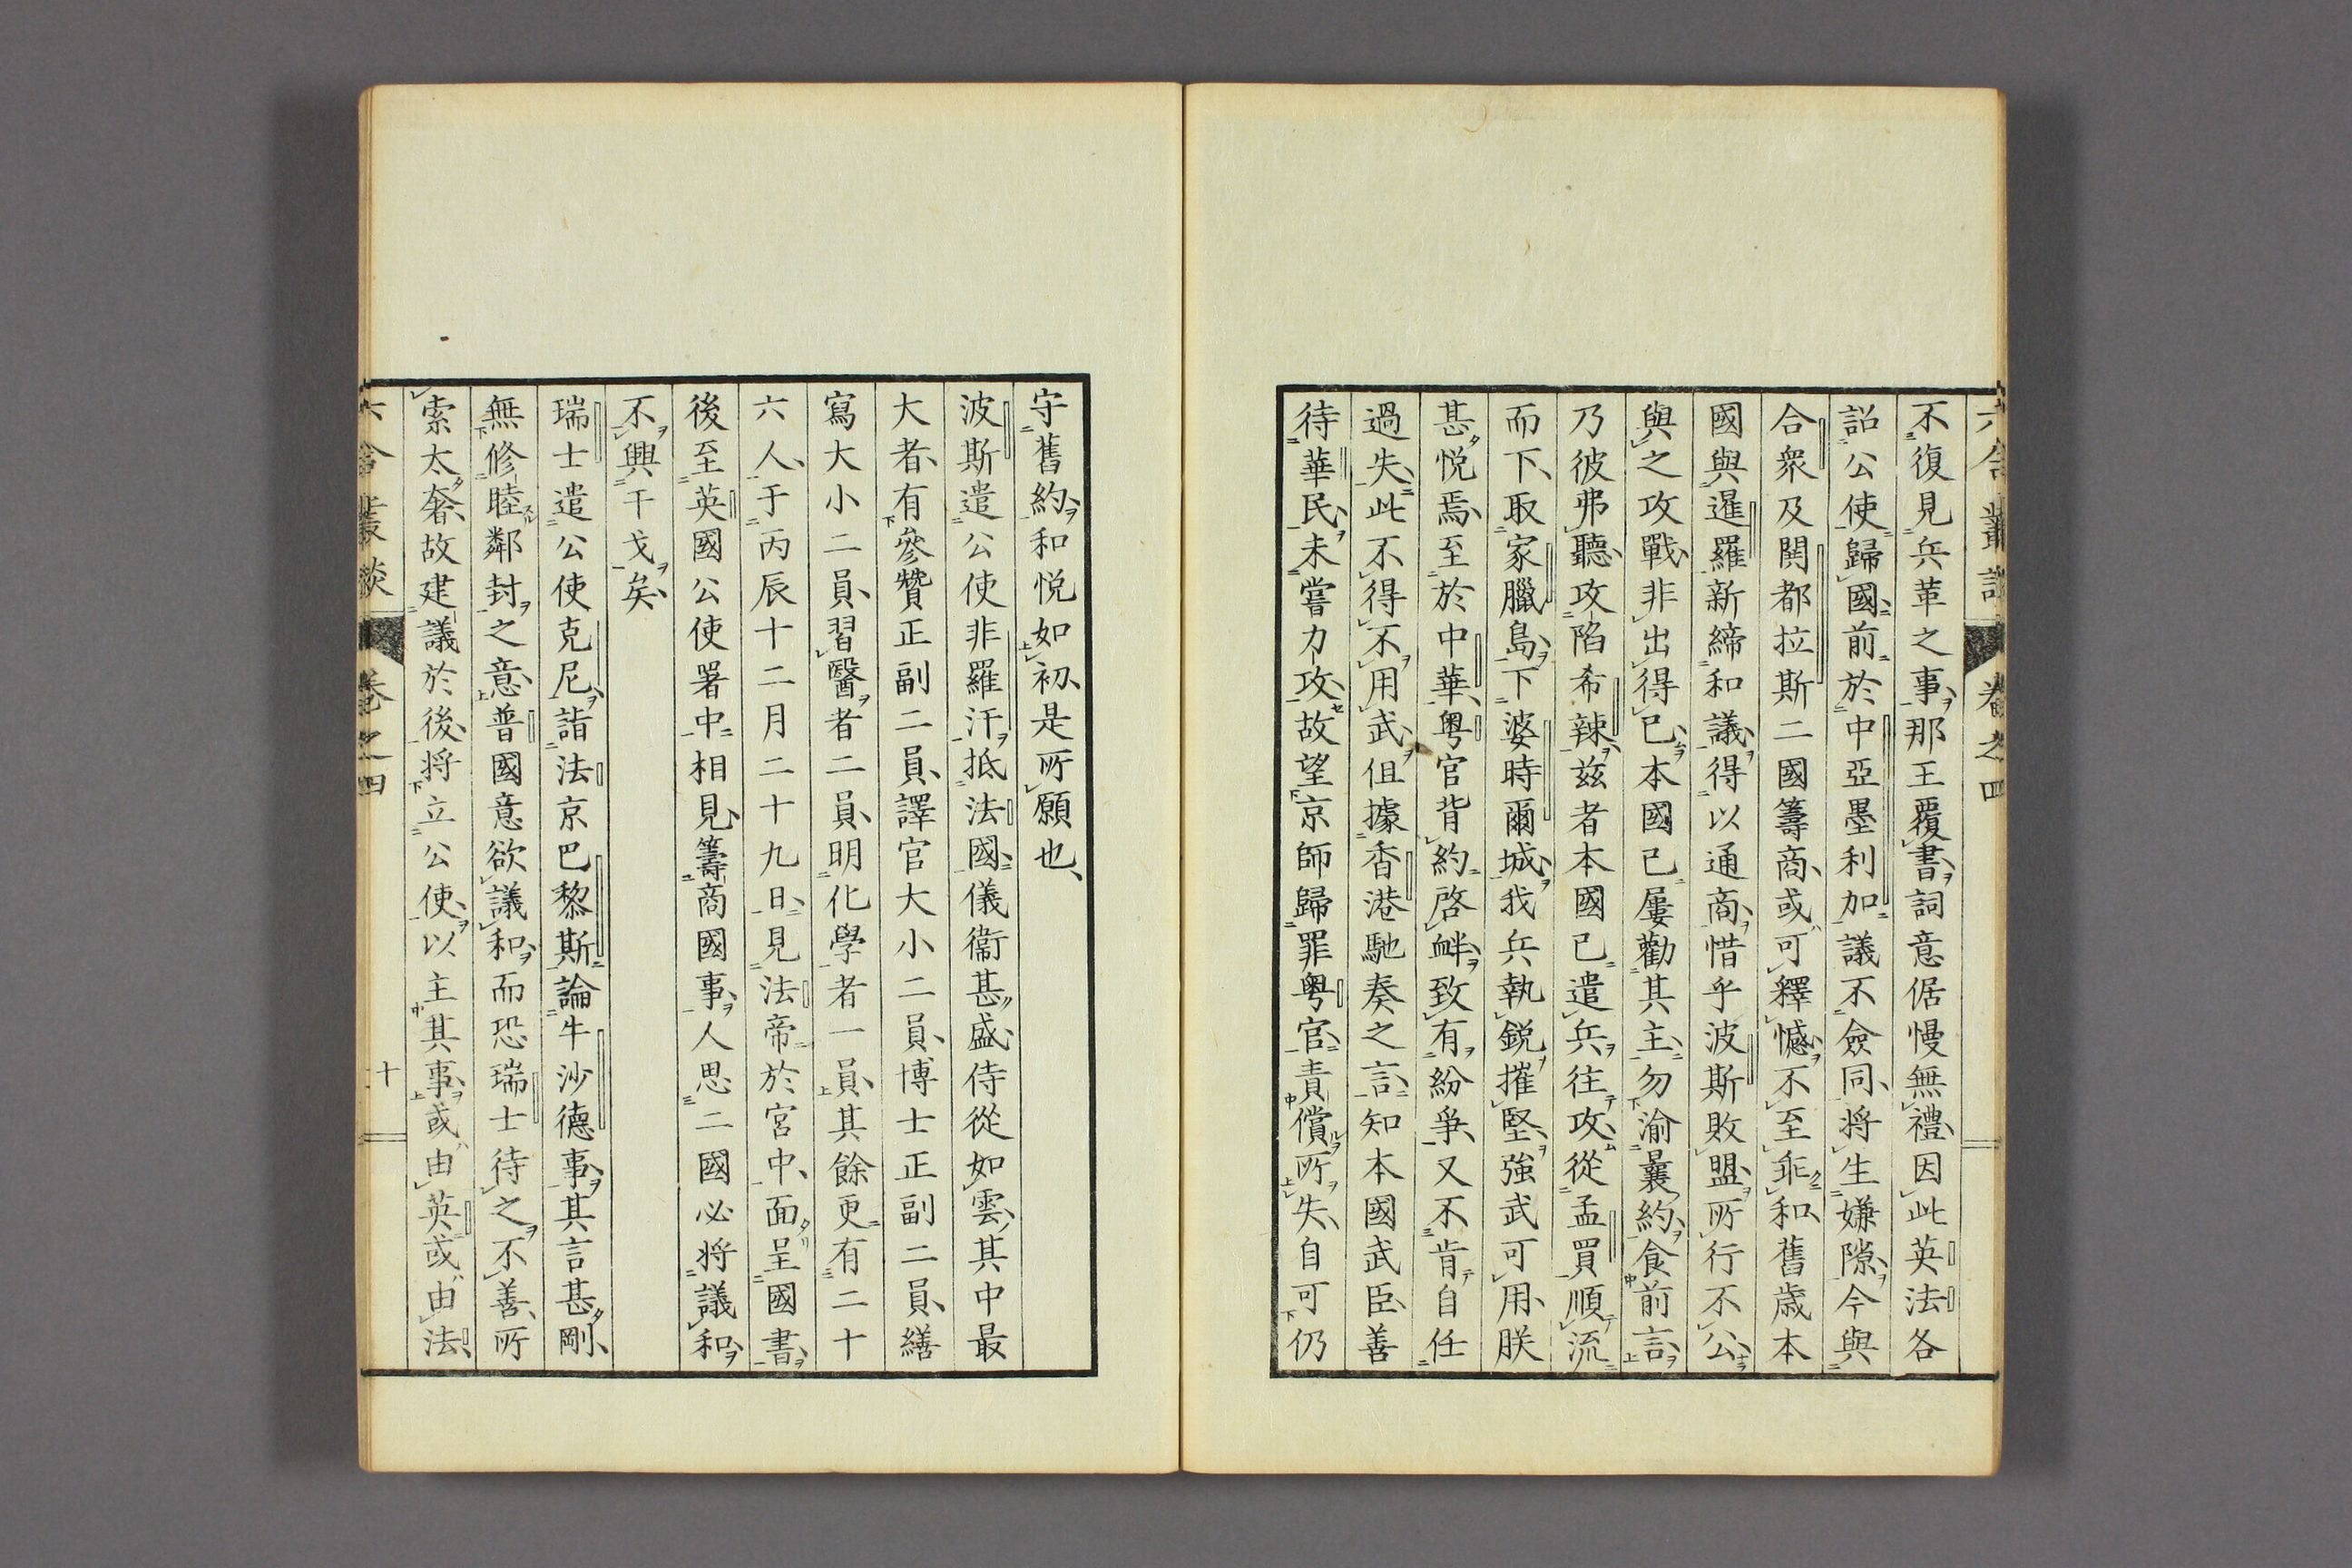 六合叢談 卷之四
不復見兵革之事、那王覆書、詞意倨慢無禮、因此英法各
詔公使歸國、前於中亞墨利加議不僉同、將生嫌隙、今與
合衆及閎都拉斯二國籌商、或可釋憾、不至乖和、舊歲本
國與暹羅新締和議、得以通商、惜乎波斯敗盟、所行不公、
與之攻戰、非出得已、本國已屢勸其主、勿渝曩約、食前言、
乃彼弗聽、攻陷希辣、茲者本國已遣兵往攻、從孟買順流
而下、取家臘島、下婆時爾城、我兵執銳摧堅、強武可用、朕
甚悦焉、至於中華、粤官背約啓衅、致有紛爭、又不肯自任
過失、此不得不用武、但據香港馳奏之言、知本國武臣、善
待華民、未嘗力攻、故望京師歸罪粤官、責償所失、自可仍
守舊約、和悦如初、是所願也、
波斯遣公使非羅汗抵法國、儀衞甚盛、侍從如雲、其中最
大者、有參贊正副二員、譯官大小二員、博士正副二員、繕
寫大小二員、習醫者二員、明化學者一員、其餘更有二十
六人、于丙辰十二月二十九日、見法帝於宮中、面呈國書、
後至英國公使署中相見、籌商國事、人思二國必將議和、
不興干戈矣、
瑞士遣公使克尼、詣法京巴黎斯、論牛沙德事、其言甚剛、
無修睦鄰封之意、普國意欲議和、而恐瑞士待之不善、所
索太奢、故建議於後、將立公使、以主其事、或由英或由法、
六合叢談 卷之四 十